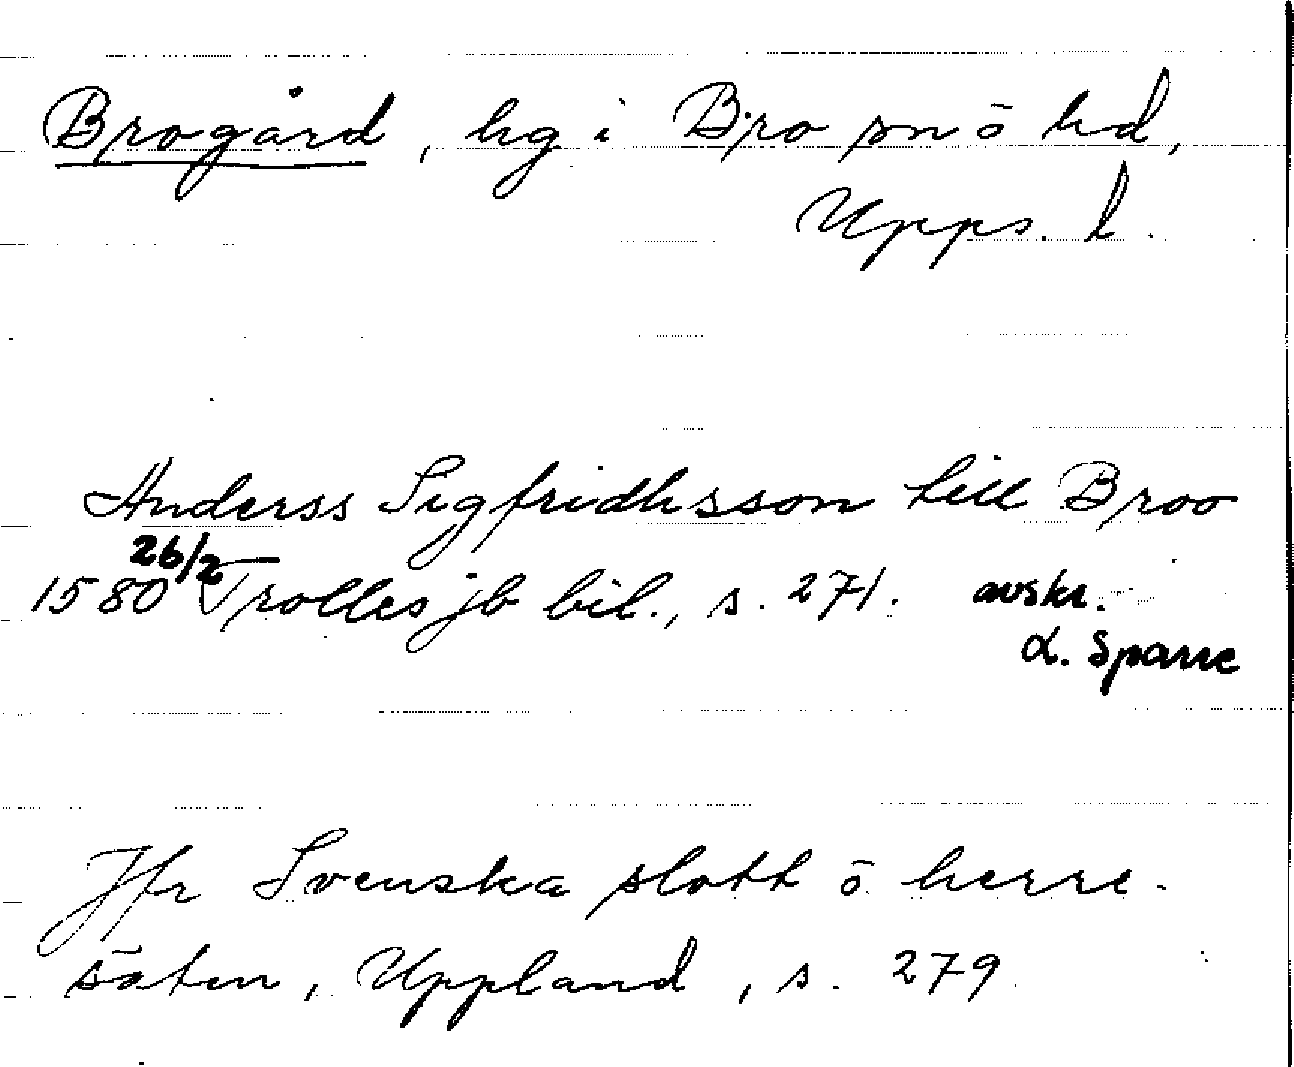 Brogård, hg i Bro sn ö hd,
Upps. l.
Anderss Sigfridhsson till Broo
1580 26/2 Trolles jb bil., s. 271. avskr.
L. Sparre
Jfr Svenska slott ö herre-
säten, Uppland, s. 279